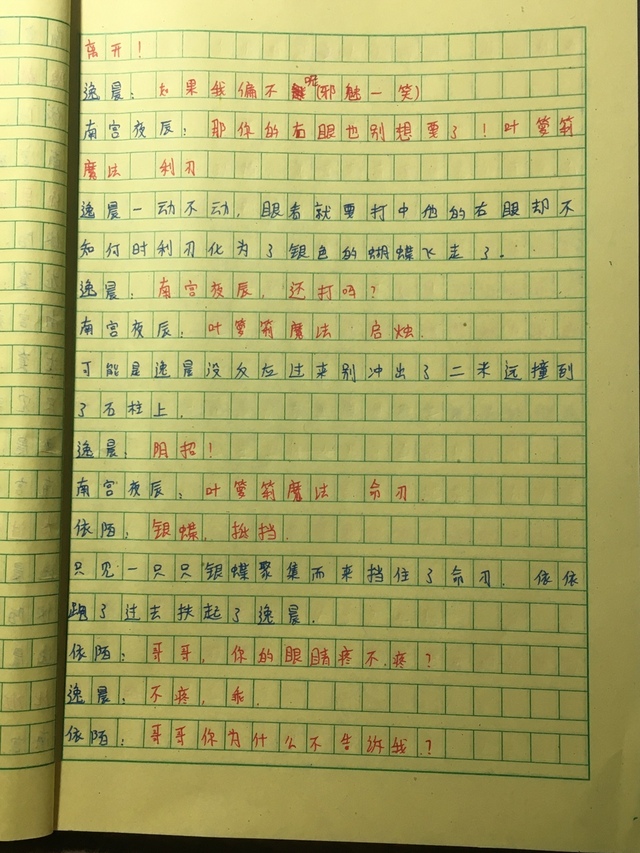 离开！
逸晨：如果我偏不呢(邪魅一笑)
南宫夜辰：那你的右眼也别想要了！叶箩莉
魔法 利刃
逸晨一动不动，眼看就要打中他的右眼却不
知何时利刃化为了银色的蝴蝶飞走了.
逸晨：南宫夜辰，还打吗？
南宫夜辰：叶箩莉魔法 启烛.
可能是逸晨没反应过来别冲出了二米远撞到
了石柱上.
逸晨：阴招！
南宫夜辰：叶箩莉魔法 命刃.
依陌：银蝶，抵挡.
只见一只只银蝶聚集而来挡住了命刃. 依依
跑了过去扶起了逸晨.
依陌：哥哥，你的眼睛疼不疼？
逸晨：不疼，乖.
依陌：哥哥你为什么不告诉我？